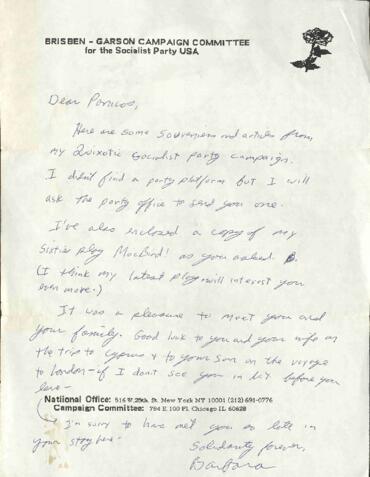 BRISBEN - GARSON CAMPAIGN COMMITTEE
for the Socialist Party USA
Dear
Here are some souvenirs and articles from
my Quixotic Socialist party campaign.
I didn't find a party platform but I will
ask the party office to send you one.
I've also enclosed a copy of my
Sixties play MacBird! as you asked.
(I think my latest play will interest you
even more.)
It was a pleasure to meet you and
your family. Good luck to you and your wife on
the trip to Cyprus & to your son on the voyage
to London - if I don't see you in before you
leave -
National Office: 516 W. 25th St. New York NY 10001 (212) 691-0776
Campaign Committee: 784 E. 100 Pl. Chicago IL 60628
I'm sorry to have met you so late in
your stay here -
Solidarity forever,
Barbara